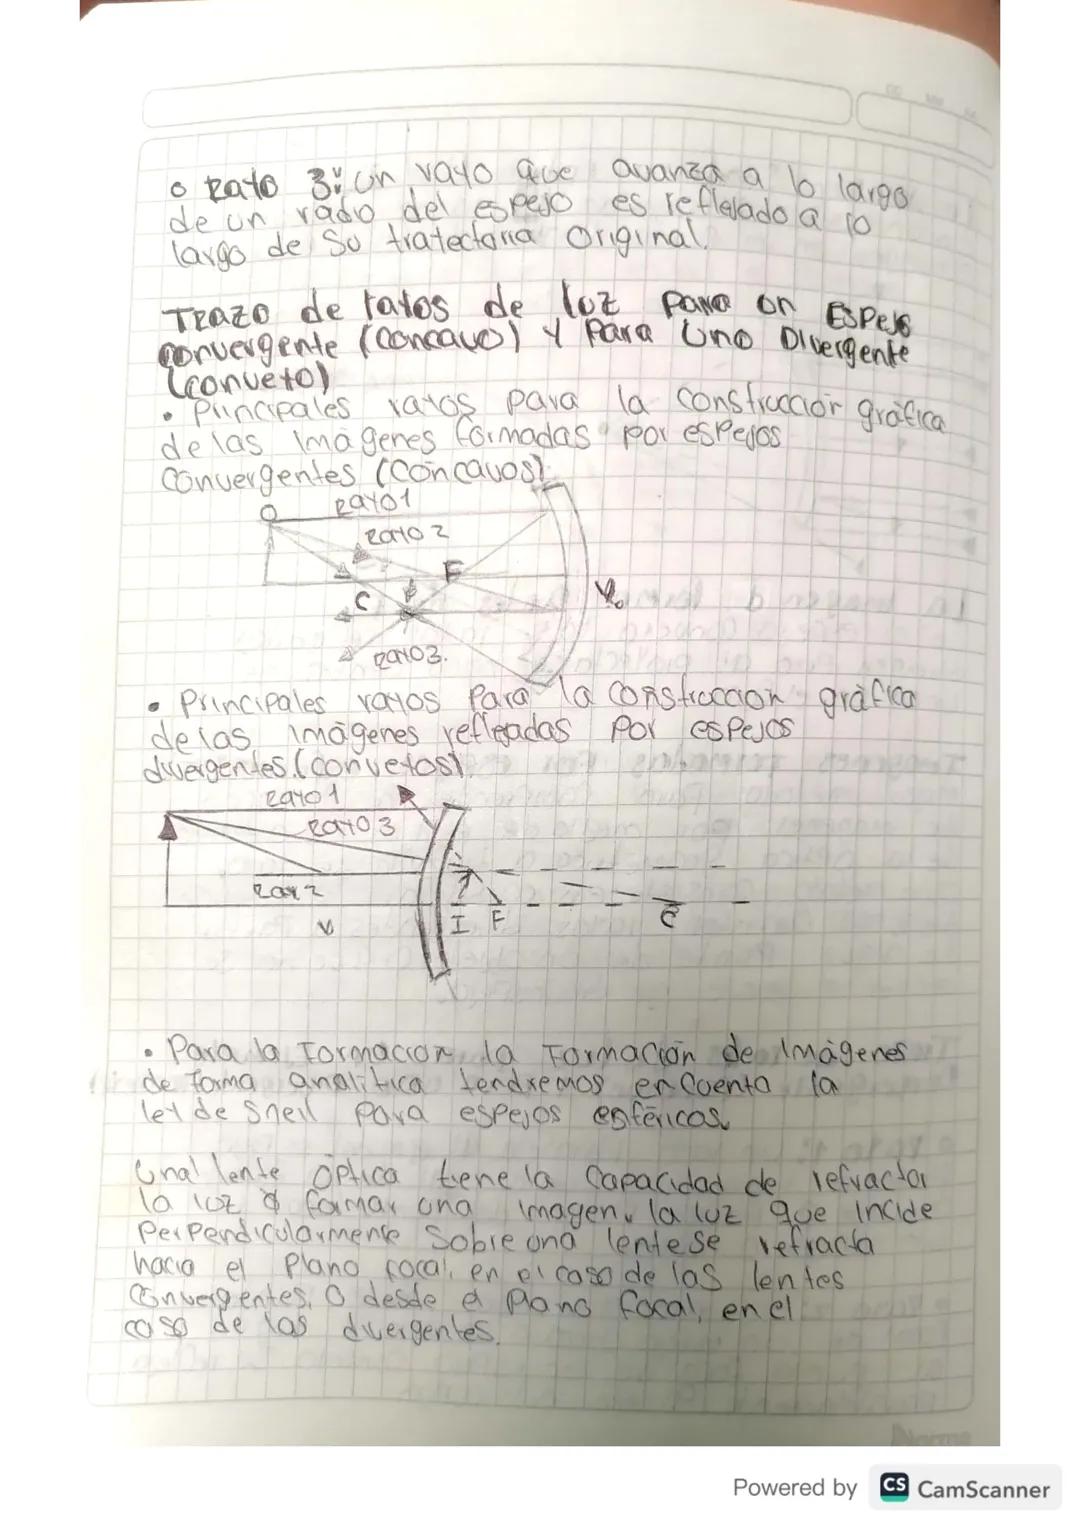 o Rayo 3: un rayo que avanza a lo largo
de un radio del espejo es reflejado a lo
largo de su trayectoria original.
Trazo de rayos de luz para un Espejo
convergente (concavo) y Para Uno Divergente
(convexo)
• Principales rayos para la construcción gráfica
de las imágenes formadas por espejos
convergentes (concavos).
O
Rayo 1
Rayo 2
F
C
V
Rayo 3.
• Principales rayos Para la construccion gráfica
de las imágenes reflejadas por espejos
divergentes. (convexos).
Rayo 1
Rayo 3
Ray 2
V
I F
C
• Para la Formacion, la Formación de Imágenes
de Forma analítica tendremos en cuenta la
ley de Snell Para espejos esféricos.
Una lente óptica tiene la capacidad de refractar
la luz y formar una imagen, la luz que incide
Perpendicularmente sobre una lente se refracta
hacia el Plano focal, en el caso de las lentes
Convergentes, o desde el plano focal, en el
caso de las divergentes.
Norma
Powered by CS CamScanner